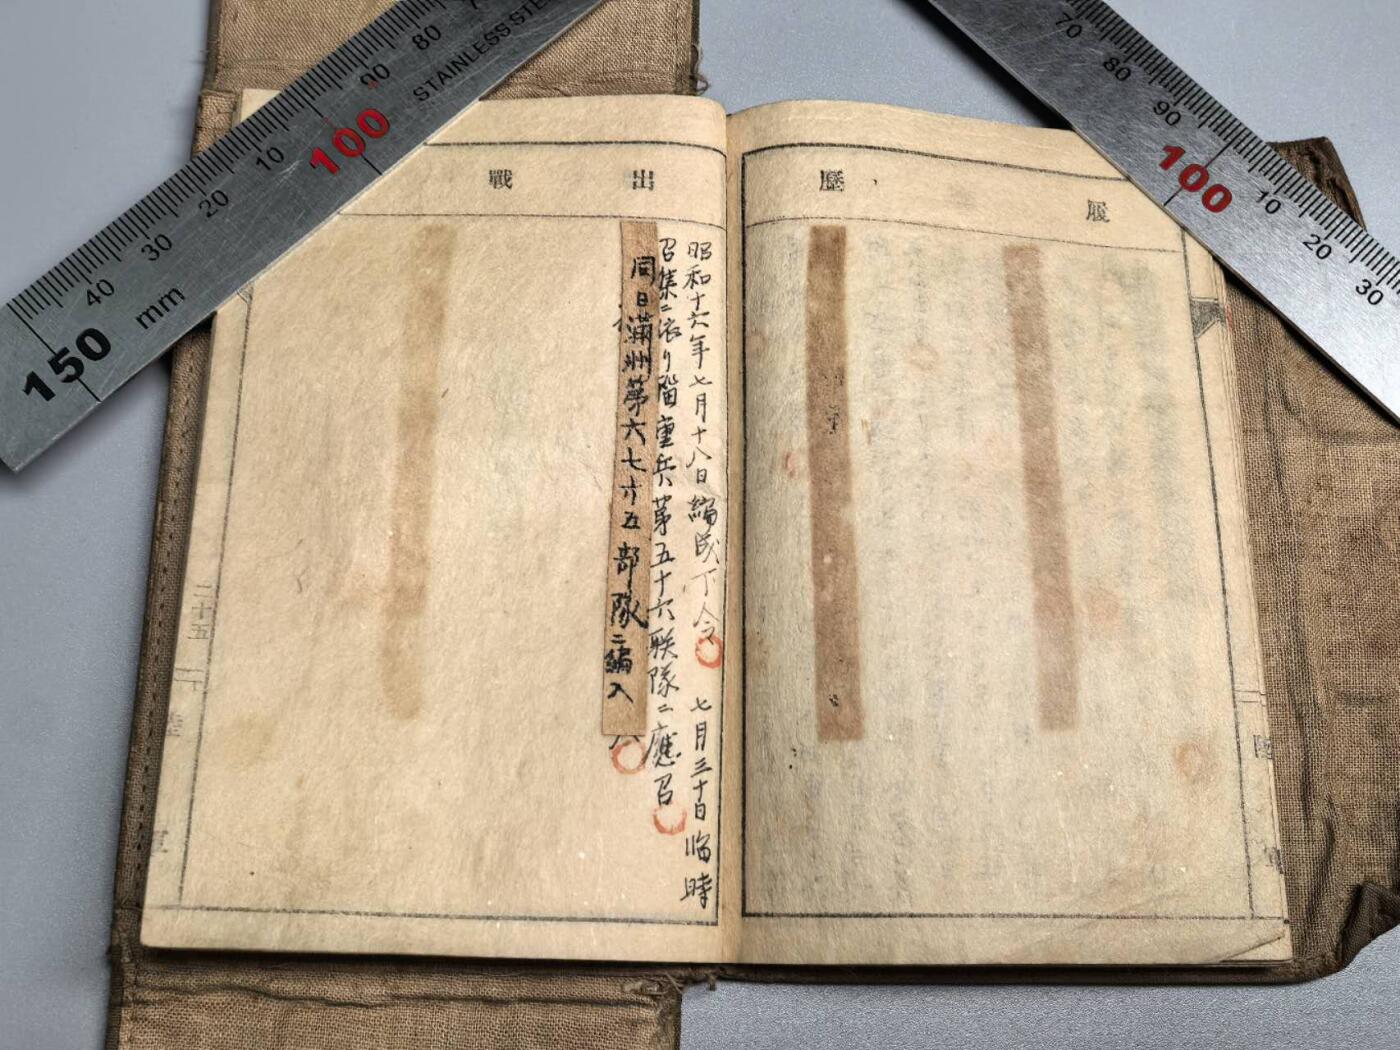 履
歷
昭和十六年七月十八日編成下令 七月三十日臨時
召集ニ依リ輜重兵第五十六联隊ニ應召
同日滿州第六七才五部隊ニ編入
出
戰
二十五
陸
軍
80
90
STAINLESS STE
100
10
20
30
40
mm
150
70
80
90
100
10
20
30